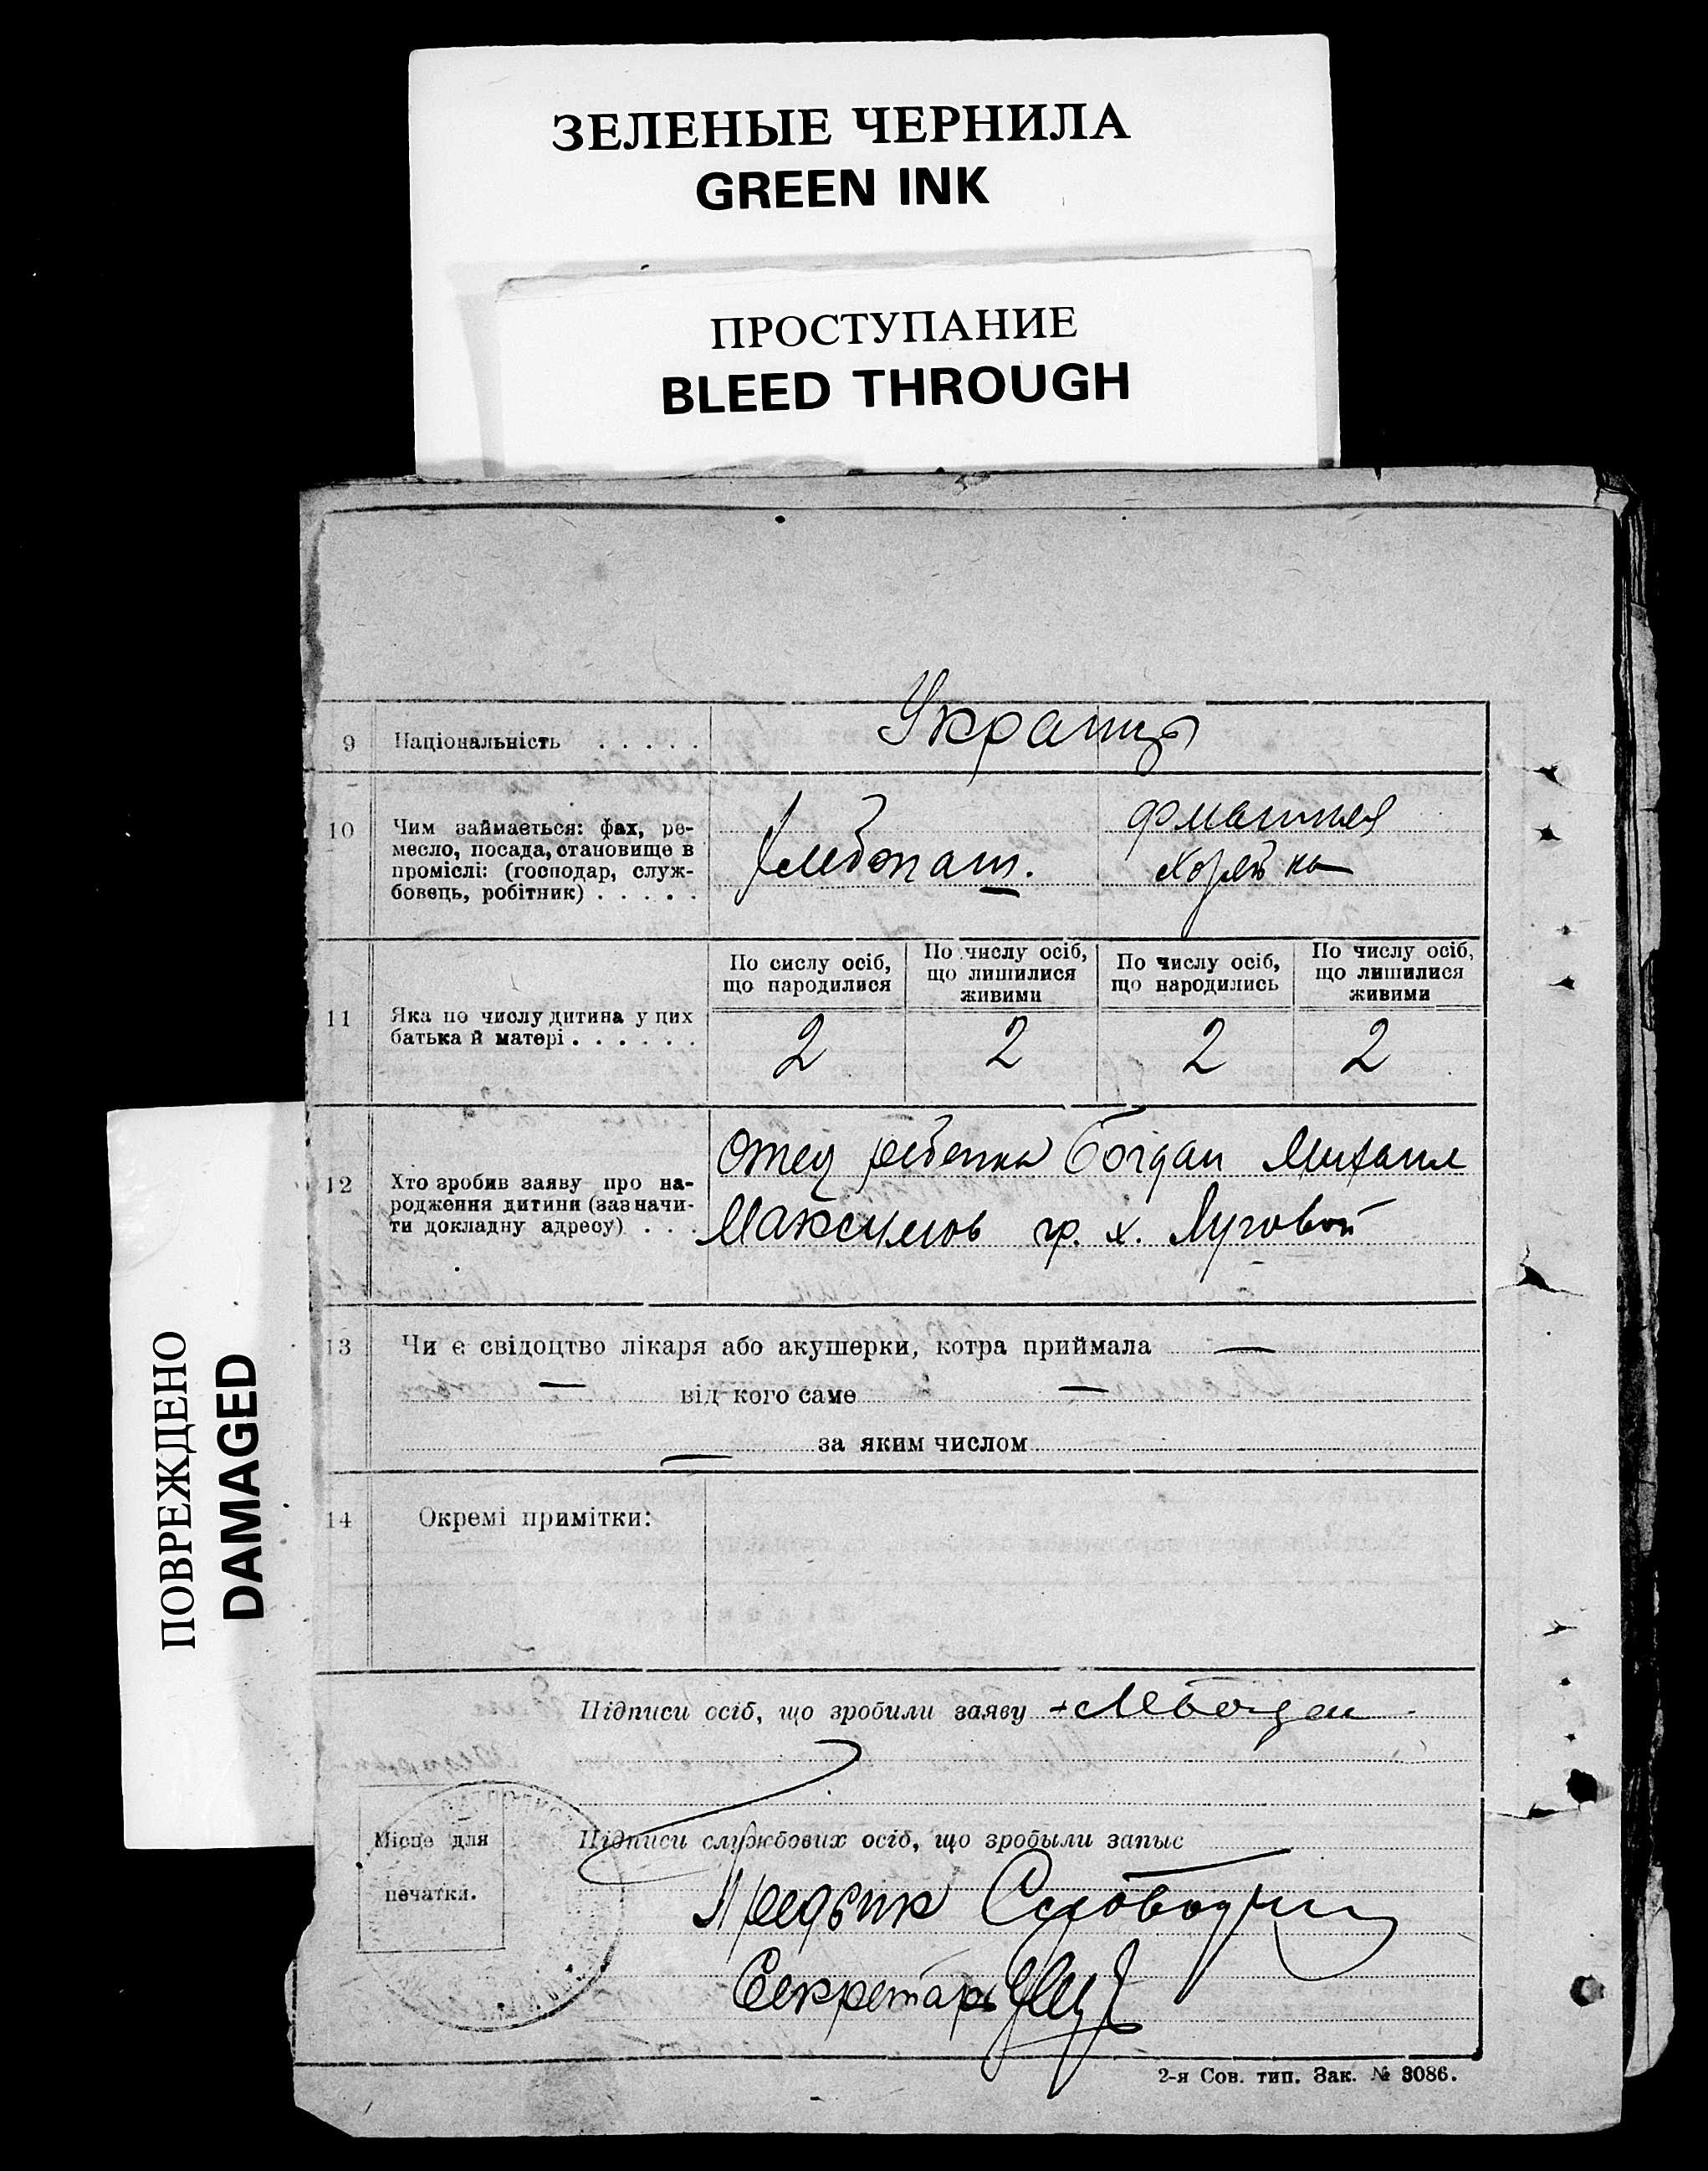 ЗЕЛЕНЫЕ ЧЕРНИЛА
GREEN INK
ПРОСТУПАНИЕ
BLEED THROUGH
ПОВРЕЖДЕНО
DAMAGED
9 Національність . . . . . Украинцы
10 Чим займається: фах, ре-
месло, посада, становище в
проміслі: (господар, служ-
бовець, робітник) . . . . .
Хлебопаш.
11 Яка по числу дитина у цих
батька й матері . . . . . .
По сислу осіб,
що народилися
По числу осіб,
що лишилися
живими
По числу осіб,
що народились
По числу осіб,
що лишилися
живими
2 2 2 2
12 Хто зробив заяву про на-
родження дитини (зазначи-
ти докладну адресу) . . .
Отец ребенка Богдан Михаил
Максимов гр. х. Луговой
13 Чи є свідоцтво лікаря або акушерки, котра приймала —
— від кого саме —
— за яким числом
14 Окремі примітки:
Підписи осіб, що зробили заяву
Місце для
печатки.
Підписи службових осіб, що зробыли запыс
Секретарь
2-я Сов. тип. Зак. № 3086.